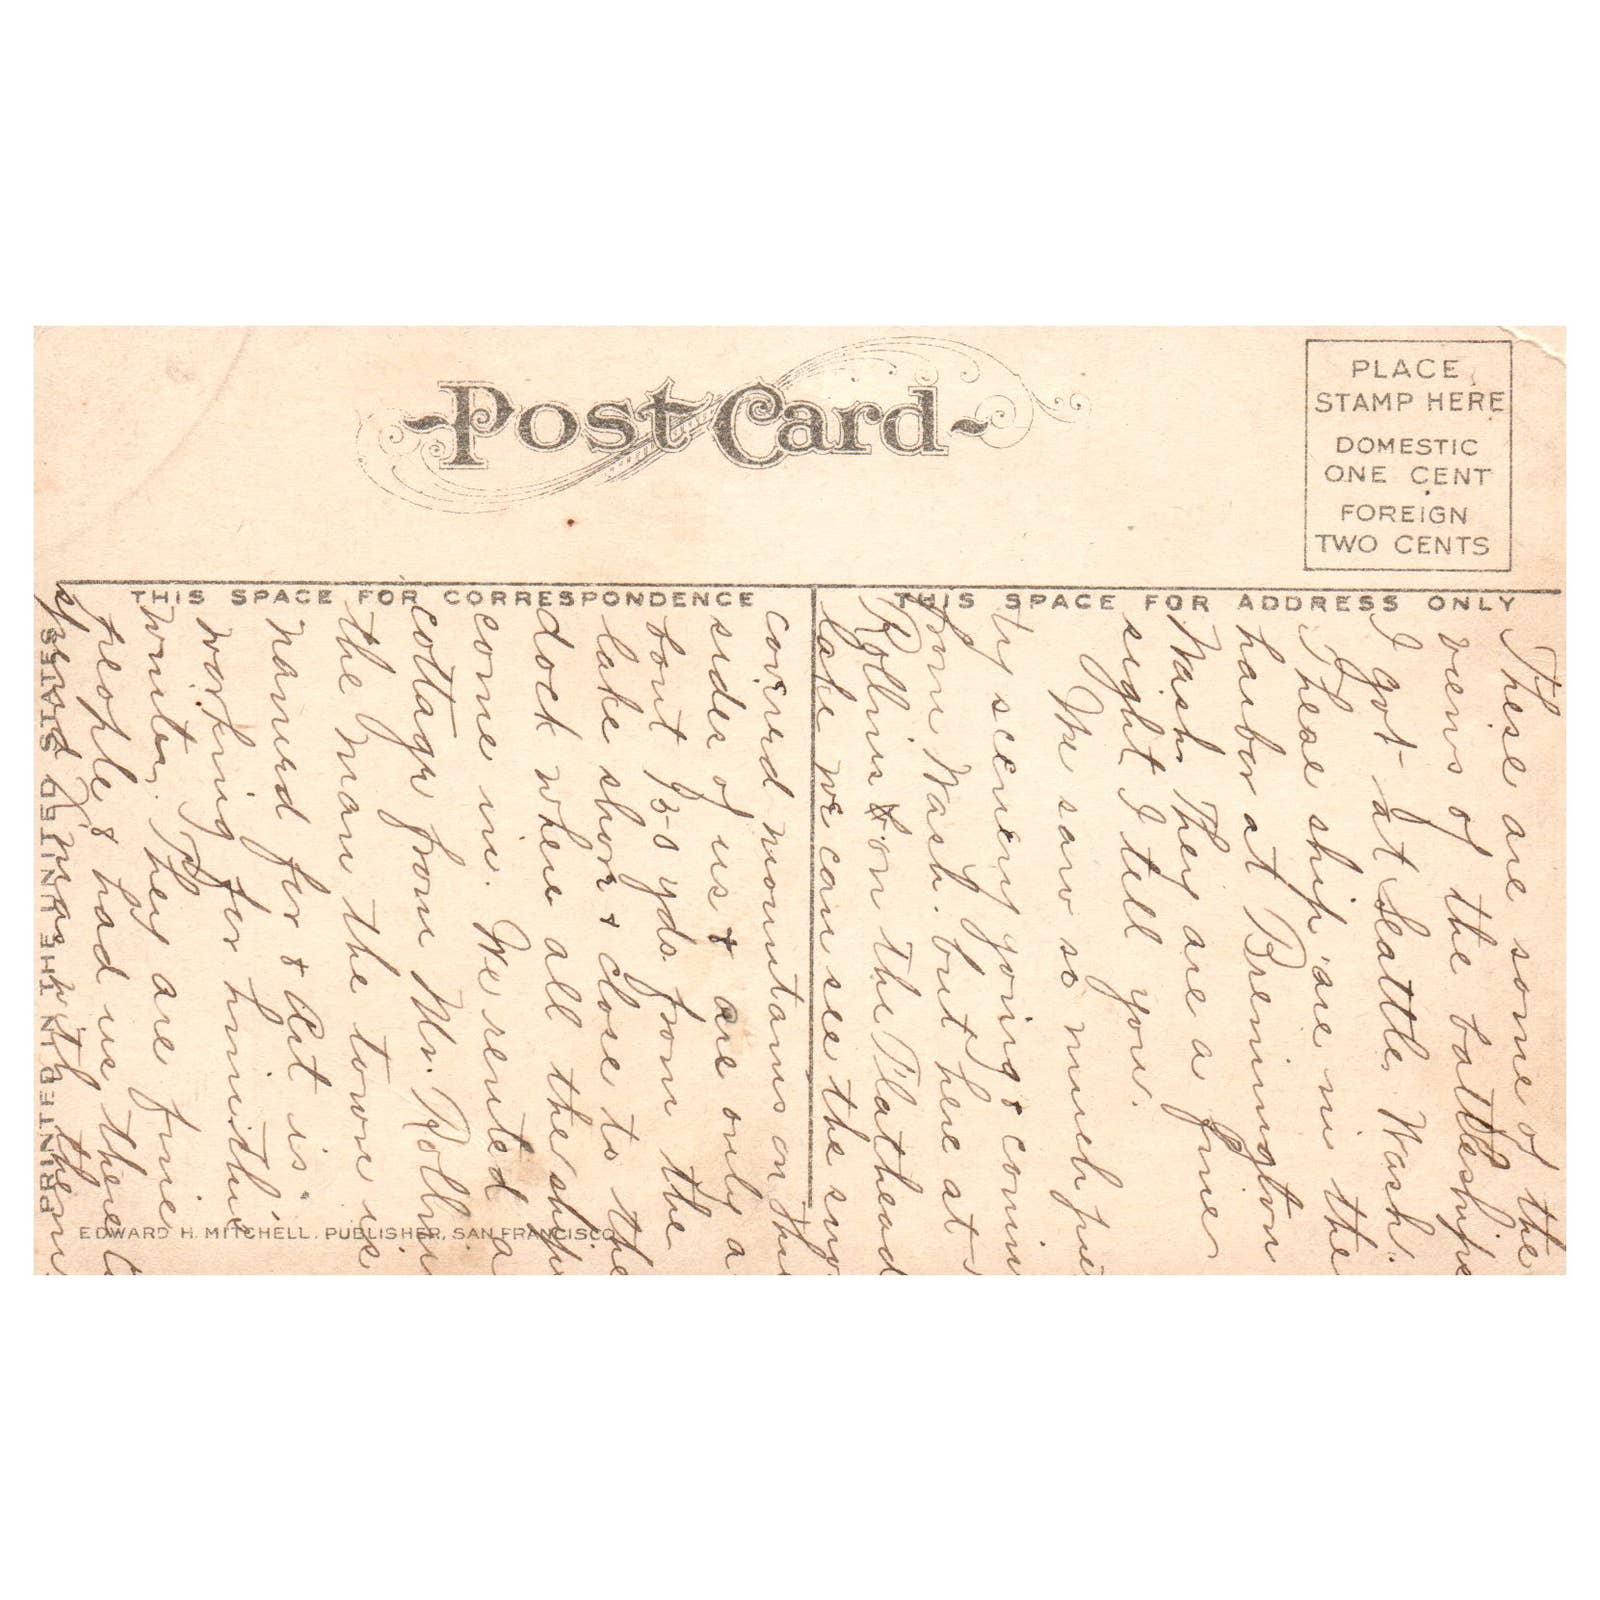 Post Card
PLACE
STAMP HERE
DOMESTIC
ONE CENT
FOREIGN
TWO CENTS
THIS SPACE FOR CORRESPONDENCE
THIS SPACE FOR ADDRESS ONLY
These are some of the
views of the battleships
I got at Seattle, Wash.
These ship are in the
harbor at Bremington
Wash. They are a fine
sight I tell you.
We saw so much pret
ty scenery going & comin
from Wash. but here at
Rollins & on the Flathead
lake we can see the sno
coverd mountains on this
sides of us & are only a
bout 75 yds. from the
lake shore & close to the
dock where all the ships
come in. We rented a
cottage from Mr. Rollin
the man the town is
named for & Art is
working for him this
winter. They are fine
people & had us there to
spend Xmas with them
PRINTED IN THE UNITED STATES
EDWARD H. MITCHELL. PUBLISHER, SAN FRANCISCO